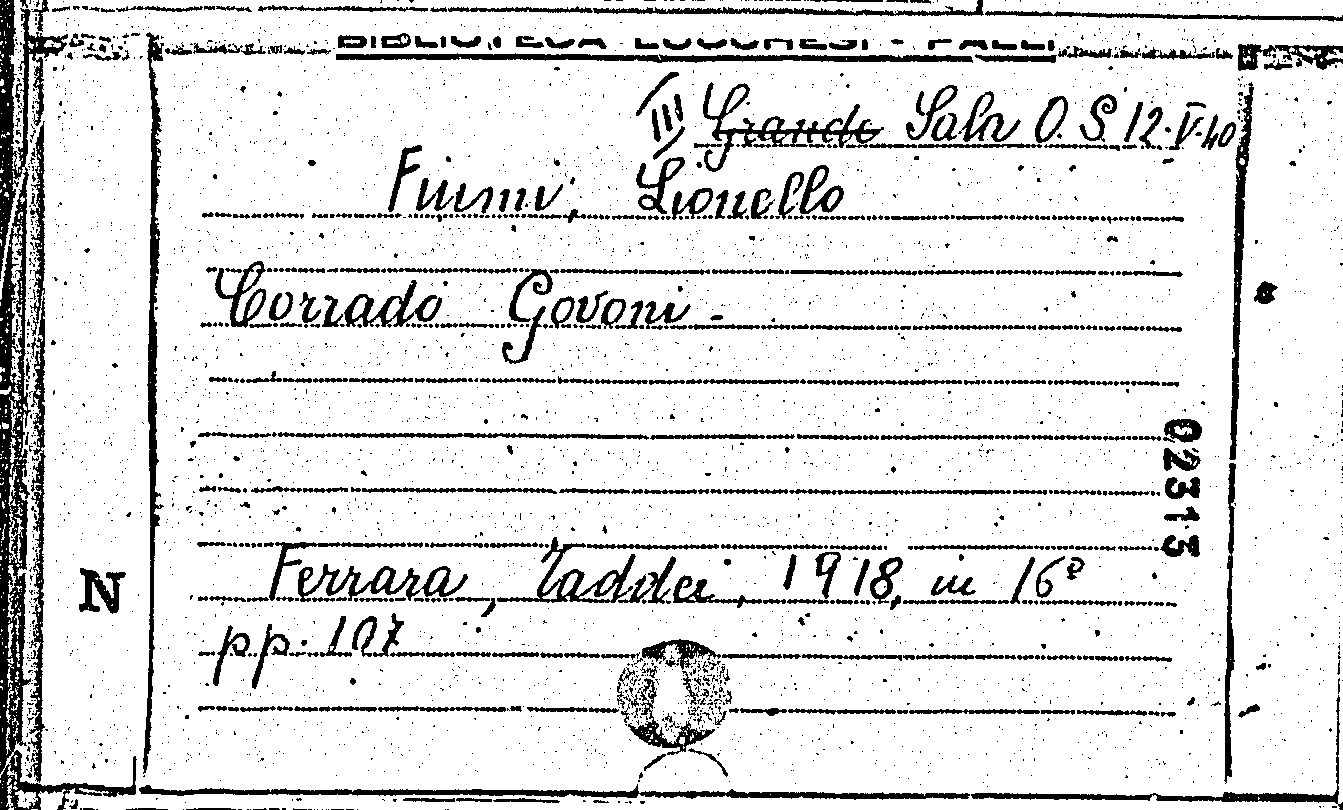 BIBLIOTECA LUCCHESI - PALLI
III Grande Sala O.S. 12.V.40
Fiumi, Lionello
Corrado Govoni -
02313
Ferrara, Taddei, 1918, in 16º
N
pp. 107